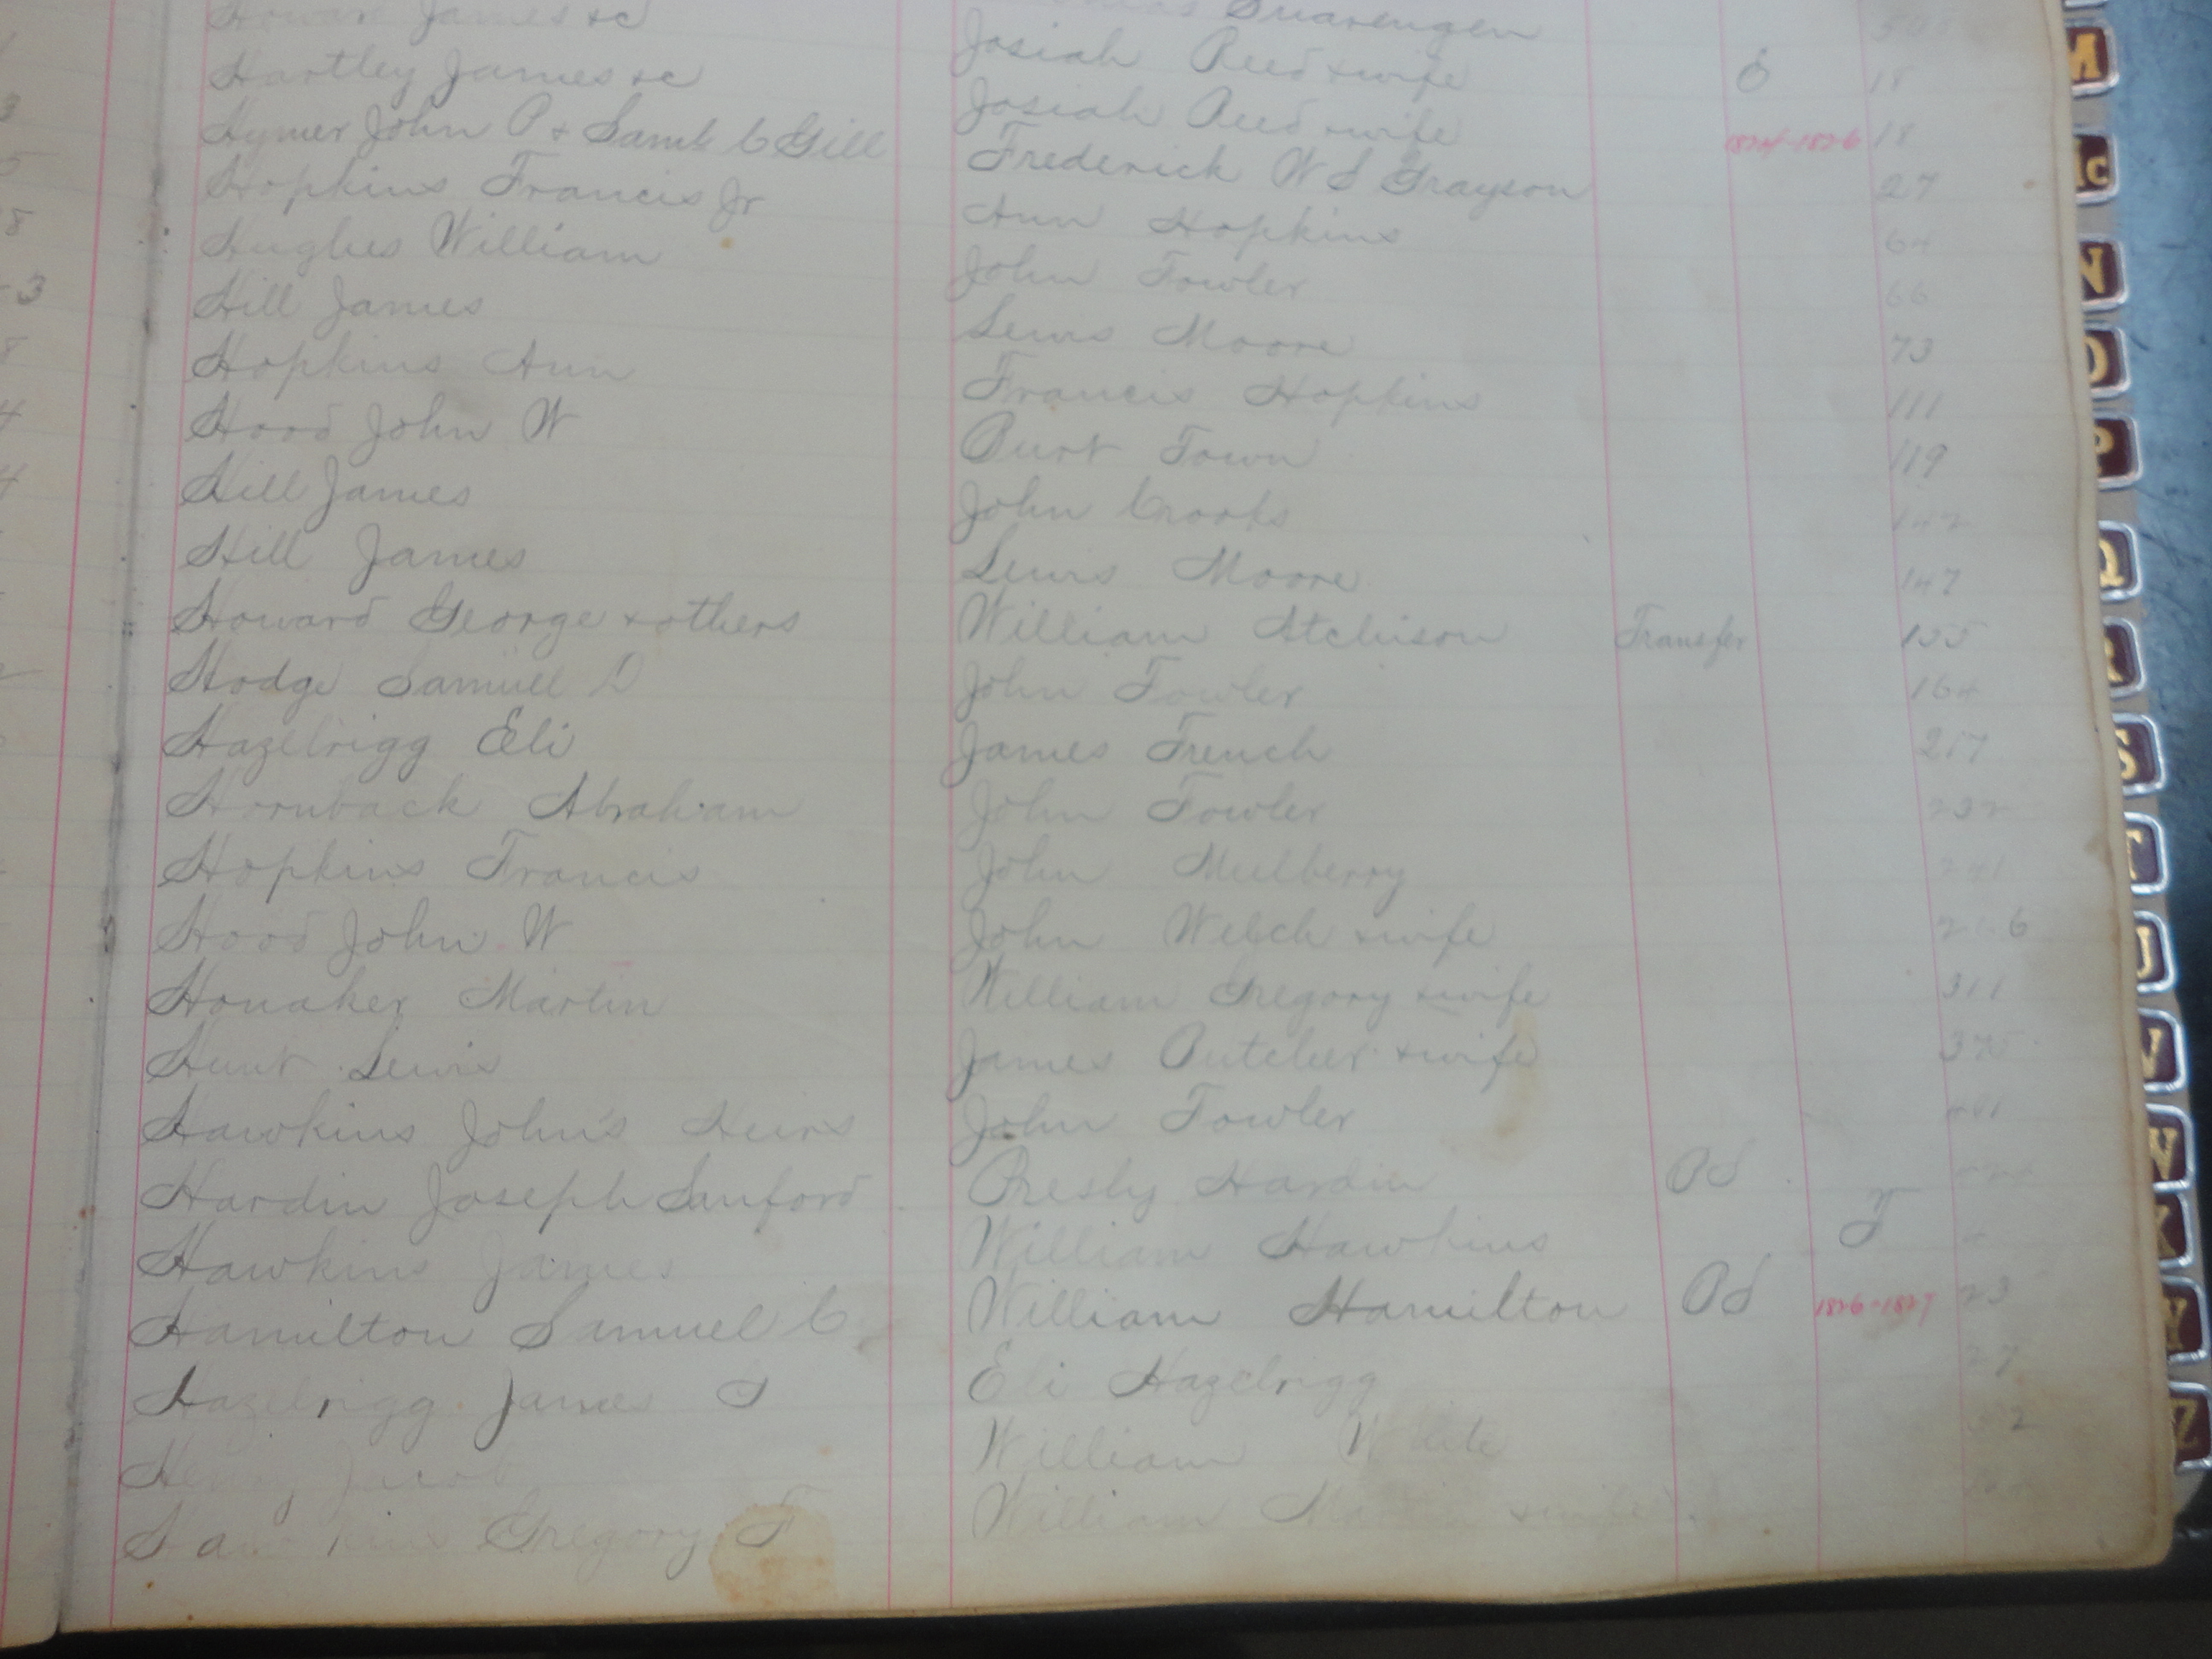 Howard James &c
Hartley James &c Josiah Reed & wife 6 18
Hymer John P & Saml C Gill Josiah Reed & wife 1824-1826 18
Hopkins Francis Jr Frederick W S Grayson 27
Hughes William Ann Hopkins 64
Hill James John Fowler 66
Hopkins Ann Lewis Moore 73
Hood John W Francis Hopkins 111
Hill James Burt Town 119
Hill James John Crooks 142
Howard George & others Lewis Moore 147
Hodge Samuel D William Atchison Transfer 155
Hazelrigg Eli John Fowler 164
Hornback Abraham James French 217
Hopkins Francis John Fowler 232
Hood John W John Mulberry 241
Honaker Martin John Welch & wife 6
Hunt Lewis William Gregory & wife 311
Hawkins John's Heirs James Butcher & wife
Hardin Joseph Sanford John Fowler
Hawkins James Presly Hardin Bd
Hamilton Samuel C William Hawkins T
Hazelrigg James William Hamilton Bd 1826-1827 23
Henry Jacob Eli Hazelrigg 27
Gregory F William White
William & wife
M
Mc
N
O
P
Q
R
S
T
U
V
W
X
Y
Z